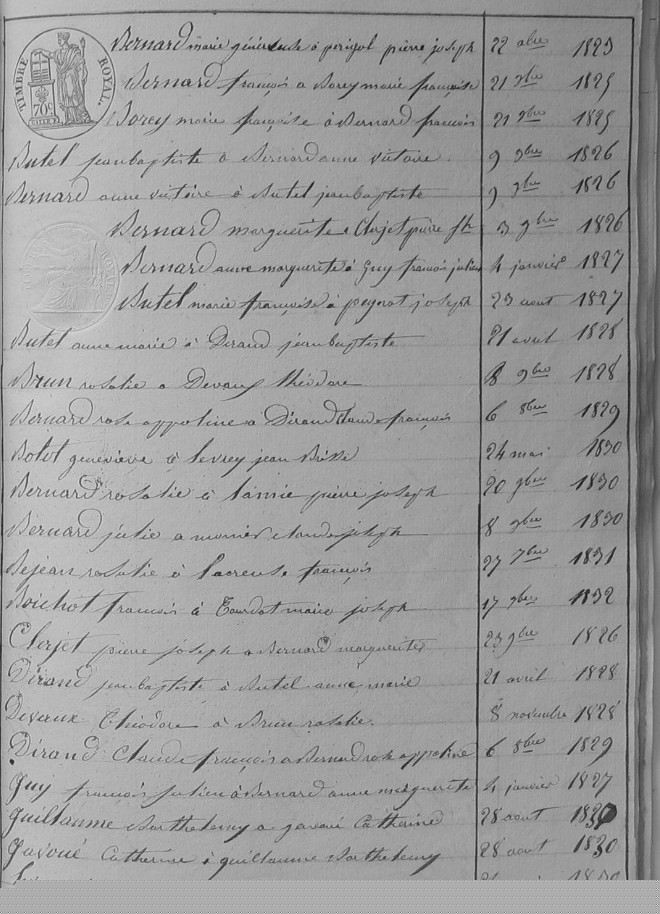 TIMBRE ROYAL
70c
Bernard marie généreuse à perigol pierre joseph 22 abre 1823
Bernard françois a Borey marie françoise 21 9bre 1825
Borey marie françoise à Bernard françois 21 9bre 1825
Butel jean baptiste a Bernard anne victoire 9 9bre 1826
Bernard anne victoire à Butel jean baptiste 9 9bre 1826
Bernard marguerite a Clerjet pierre jh 23 9bre 1826
Bernard anne marguerite à Guy françois julien 4 janvier 1827
Butel marie françoise à peyrot joseph 23 aout 1827
Butel anne marie à Dirand jean baptiste 21 avril 1828
Brun rosalie a Devaux théodore 8 9bre 1828
Bernard rose appoline a Dirand Claude françois 6 8bre 1829
Bolot geneviève à levrey jean 24 mai 1830
Bernard rosalie à lamie pierre joseph 20 9bre 1830
Bernard julie a monnier claude joseph 8 9bre 1830
Bejean rosalie à lacreuse françois 27 7bre 1831
Boichot françois à Tourdot marie joseph 17 9bre 1832
Clerjet pierre joseph a Bernard marguerite 23 9bre 1826
Dirand jean baptiste à Butel anne marie 21 avril 1828
Devaux Théodore à Brun rosalie. 8 novembre 1828
Dirand Claude françois a Bernard rose appoline 6 8bre 1829
Guy françois julien à Bernard anne marguerite 4 janvier 1827
Guillaume Barthelemy a gavoué Catherine 28 aout 1830
Gavoué Catherine à guillaume Barthelemy 28 aout 1830